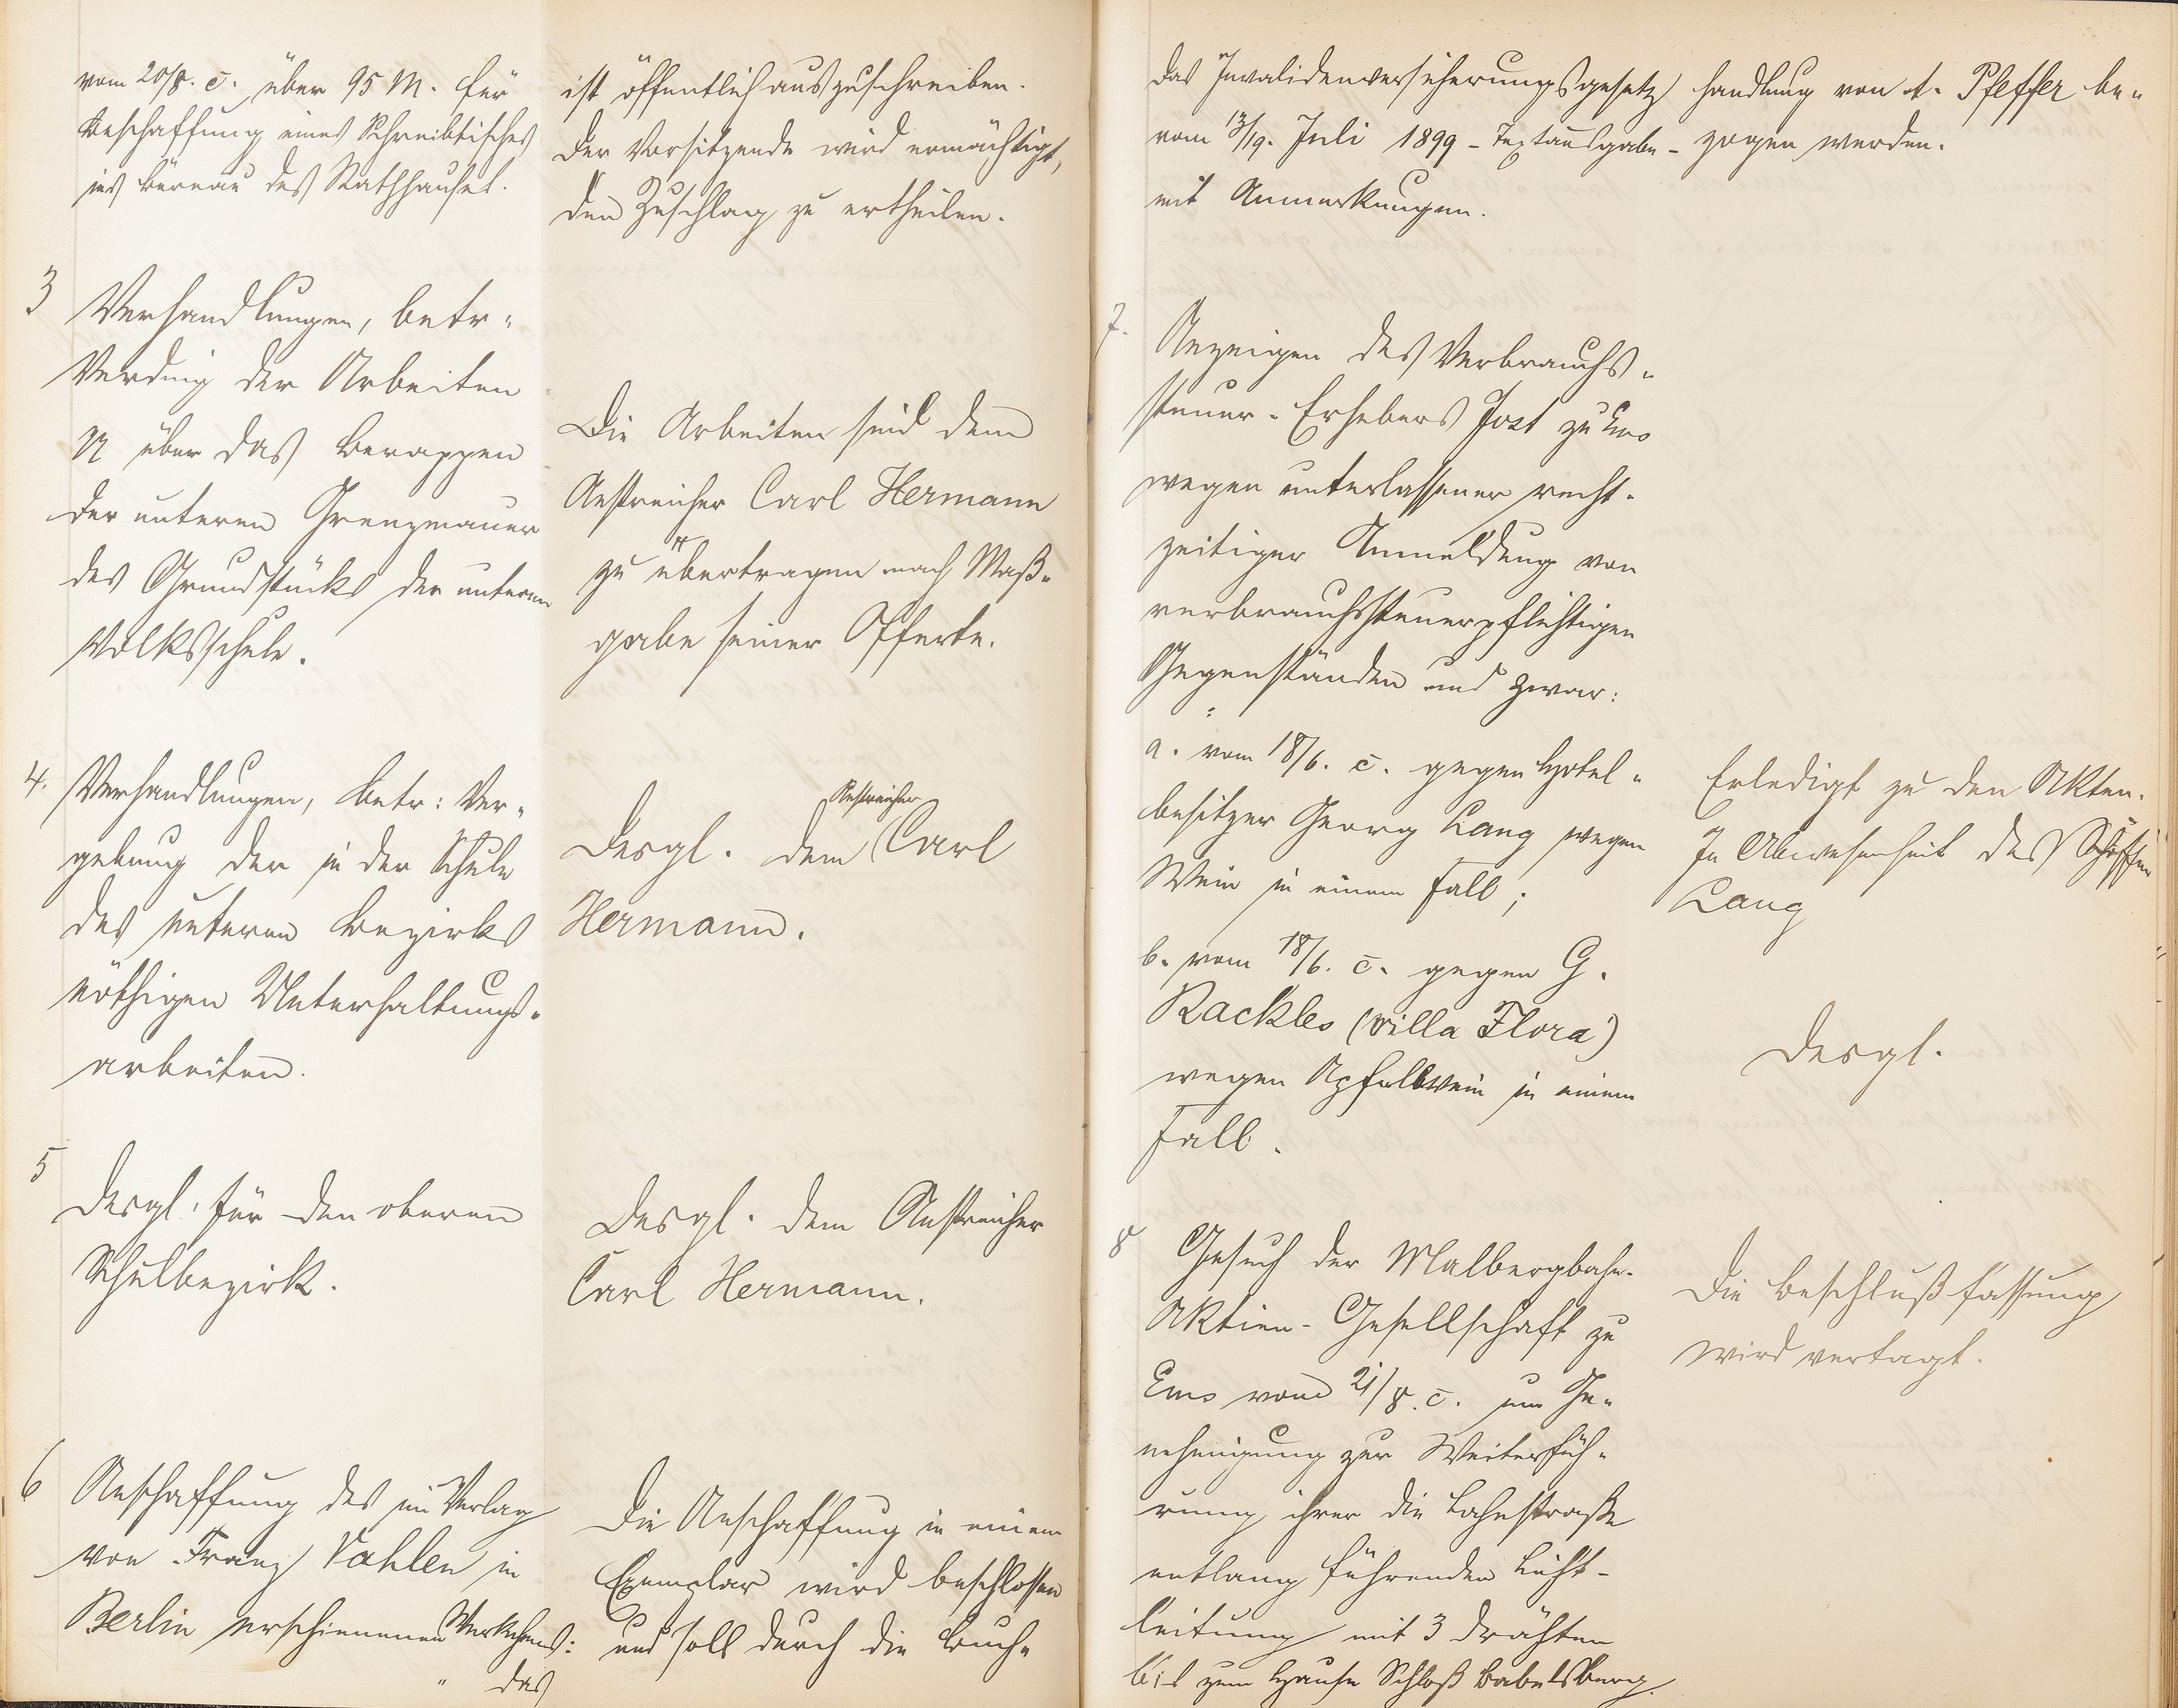 vom 20/8. c. über 95 M. für
Beschaffung eines Schreibtisches
ins Büreau des Rathhauses.
ist öffentlich auszuschreiben.
Der Vorsitzende wird ermächtigt,
den Zuschlag zu ertheilen.
3 Verhandlungen, betr.
Verding der Arbeiten
über das Berappen
der unteren Grenzmauer
des Grundstücks der unteren
Volksschule.
Die Arbeiten sind dem
Anstreicher Carl Hermann
zu übertragen nach Maß-
gabe seiner Offerte.
4. Verhandlungen, betr: Ver-
gebung der in der Schule
des unteren Bezirks
nöthigen Unterhaltungs-
arbeiten.
Anstreicher
Desgl. dem Carl
Hermann.
5 Desgl. für den oberen
Schulbezirk.
Desgl. dem Anstreicher
Carl Hermann.
6 Anschaffung des im Verlag
von Franz Vahlen in
Berlin erschienenen Werkchens:
" das
Die Anschaffung in einem
Exemplar wird beschlossen
und soll durch die Buch-
das Invalidenversicherungsgesetz
vom 13/19. Juli 1899 - Textausgabe -
mit Anmerkungen.
handlung von A. Pfeffer be-
zogen werden.
7. Anzeigen des Verbrauchs-
steuer-Erhebers Jost zu Ems
wegen unterlassener recht-
zeitiger Anmeldung von
verbrauchssteuerpflichtigen
Gegenständen und zwar:
a. vom 18/6. c. gegen Hotel-
besitzer Georg Lang wegen
Wein in einem Fall;
Erledigt zu den Akten.
In Abwesenheit des Schöffen
Lang
b. vom 18/6. c. gegen G.
Rackles (Villa Flora)
wegen Apfelwein in einem
Fall.
Desgl.
8 Gesuch der Malbergbahn-
Aktien-Gesellschaft zu
Ems vom 21/8. c. um Ge-
nehmigung zur Weiterfüh-
rung ihrer die Lahnstraße
entlang führenden Licht-
leitung mit 3 Drähten
bis zum Hause Schloß Babelsberg.
Die Beschlußfassung
wird vertagt.